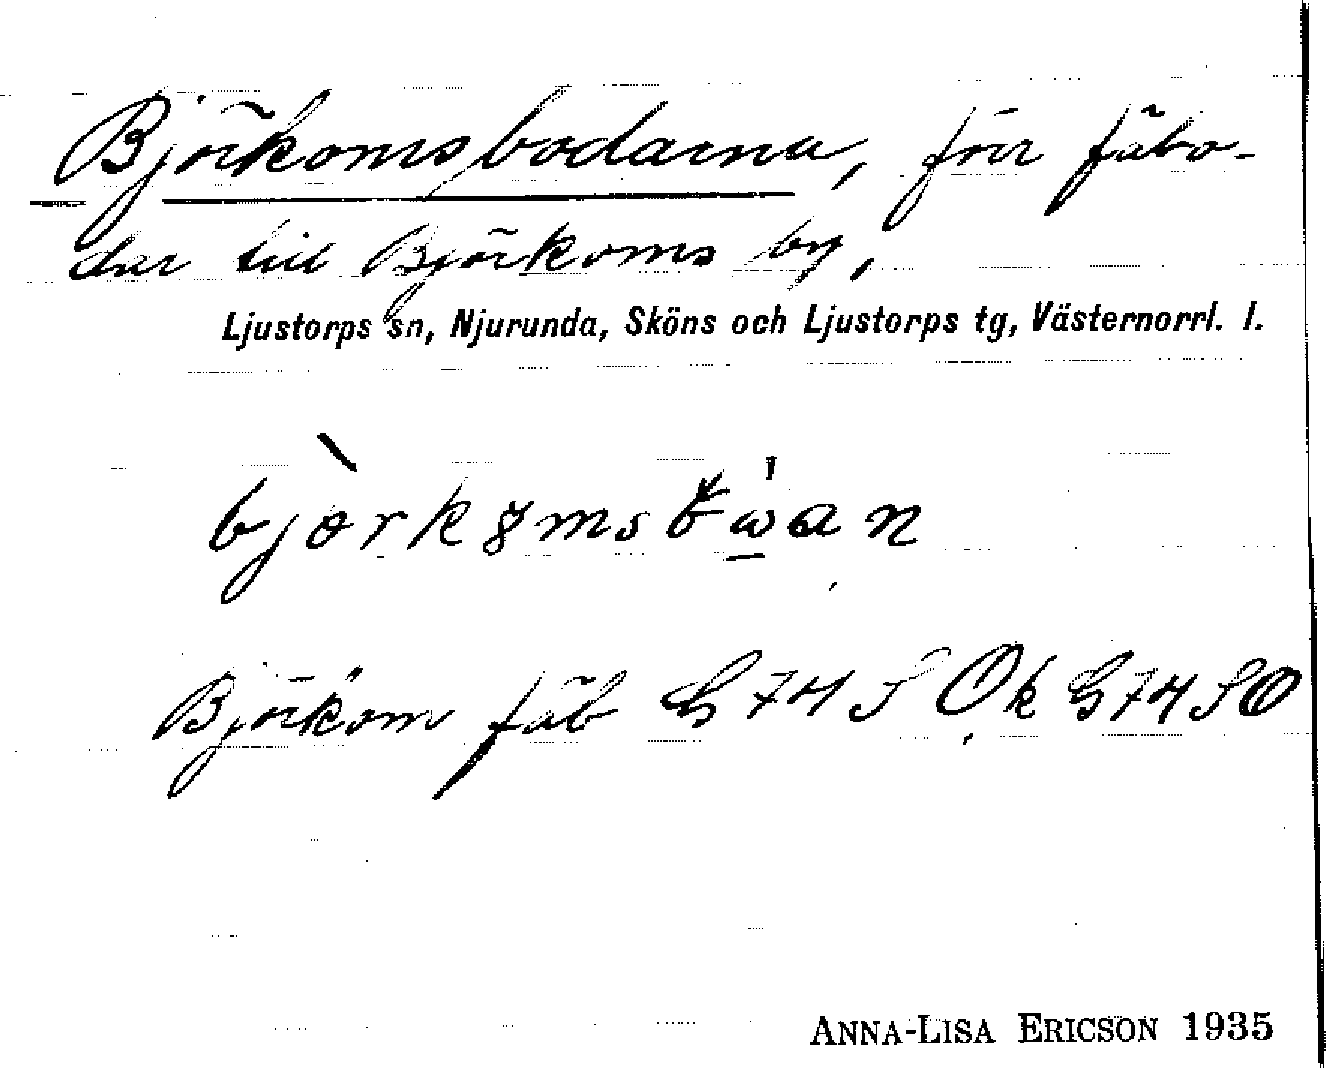 Björkomsbodarna, förr fäbo-
dar till Björkoms by,
Ljustorps sn, Njurunda, Sköns och Ljustorps tg, Västernorrl. l.
Björkom fäb G 74 S Ök G 74 SO
ANNA-LISA ERICSON 1935